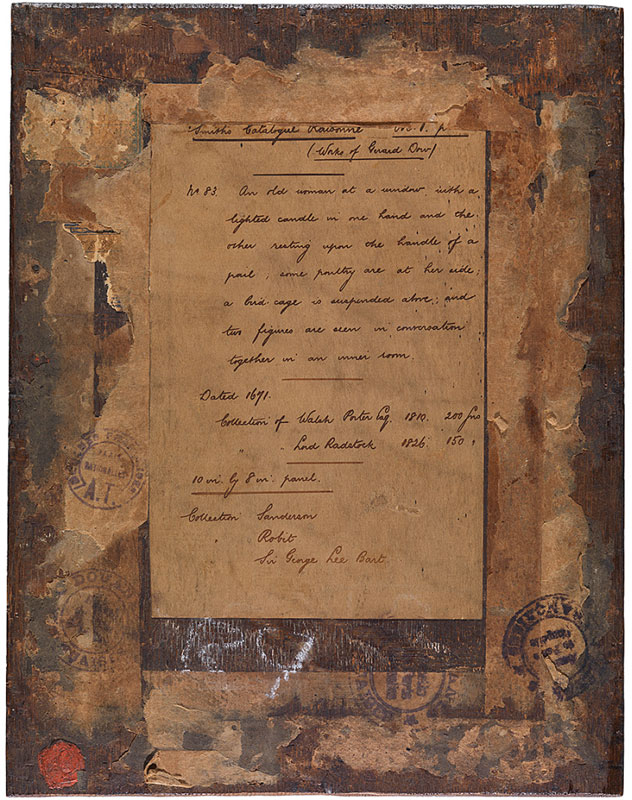 Smith's Catalogue Raisonné Vol. 1. p
(Works of Gerard Dow)
No. 83. An old woman at a window with a
lighted candle in one hand and the
other resting upon the handle of a
pail, some poultry are at her side;
a bird-cage is suspended above; and
two figures are seen in conversation
together in an inner room.
Dated 1671.
Collection of Walsh Porter Esq. 1810. 200 gns
" " Lord Radstock 1826. 150 "
10 in. by 8 in. panel.
Collection Sanderson
" Robit
Sir George Lee Bart.
A.T.